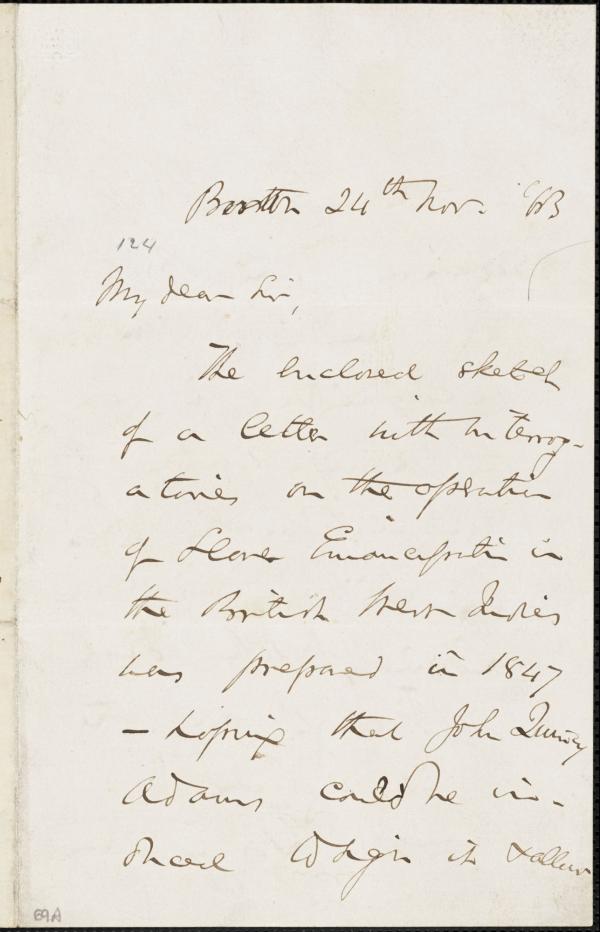 Boston 24th Nov. '63
124
My dear Sir,
The enclosed sketch
of a letter with interrog-
atories on the operation
of Slave Emancipation in
the British West Indies
was prepared in 1847
– hoping that John Quincy
Adams could be in-
duced to sign it & allow
69A